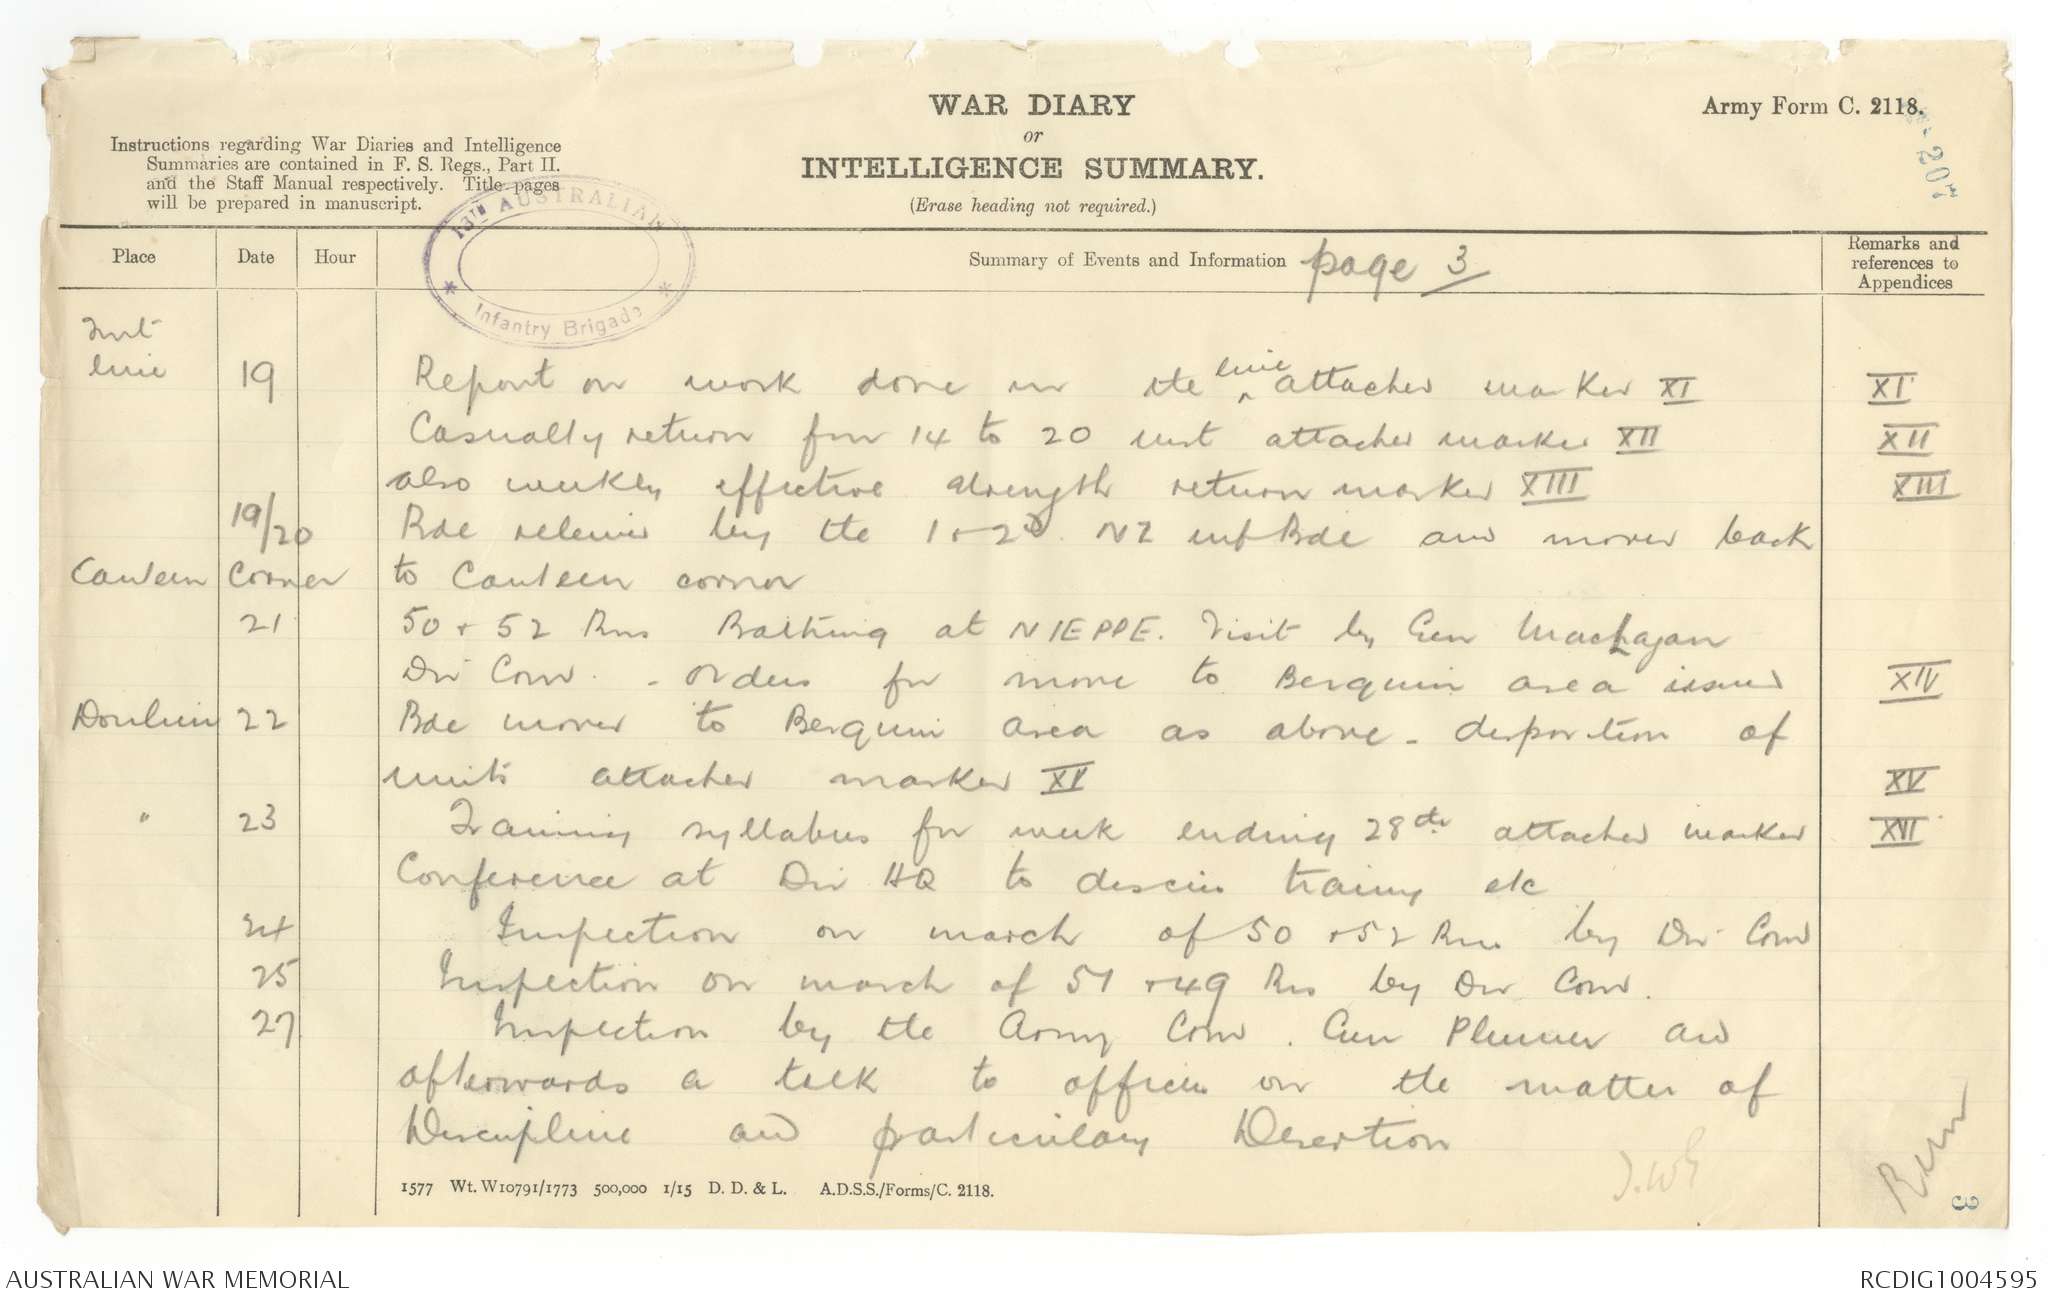 WAR DIARY
or
INTELLIGENCE SUMMARY.
(Erase heading not required.)
Army Form C. 2118.
Instructions regarding War Diaries and Intelligence
Summaries are contained in F. S. Regs., Part II.
and the Staff Manual respectively. Title pages
will be prepared in manuscript.
13TH AUSTRALIAN
* Infantry Brigade *
Place Date Hour Summary of Events and Information page 3 Remarks and references to Appendices
line 19 Report on work done in the line attached marked XI XI
Casualty return for 14 to 20 inst attached marked XII XII
also weekly effective strength return marked XIII XIII
19/20 Bde relieved by the 1 + 2nd NZ inf Bde and moved back
Canteen Corner to Canteen corner
21 50 + 52 Bns Bathing at NIEPPE. Visit by Gen Maclagan
Div Com. - Orders for move to Berquin area issued XIV
Doulieu 22 Bde moved to Berquin area as above - disposition of
units attached marked XV XV
" 23 Training syllabus for week ending 28th attached marked XVI
Conference at Div HQ to discuss training etc
24 Inspection on march of 50 + 52 Bns by Div Com
25 Inspection on march of 51 + 49 Bns by Div Com.
27 Inspection by the Army Com. Gen Plumer and
afterwards a talk to officers on the matter of
Discipline and particulary Desertion
1577 Wt. W10791/1773 500,000 1/15 D. D. & L. A.D.S.S./Forms/C. 2118.
3
AUSTRALIAN WAR MEMORIAL RCDIG1004595